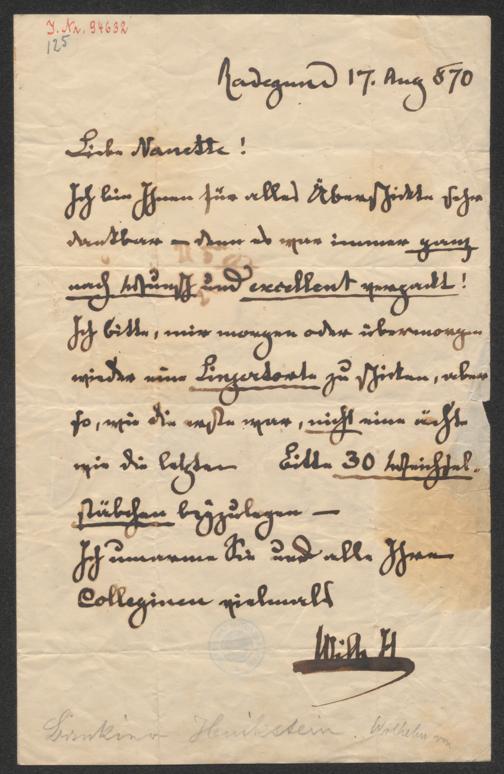 I. Nr. 94632
125
Radegund 17. Aug 870
Liebe Nanette!
Ich bin Ihnen für alles Überschickte sehr
dankbar – denn es war immer ganz
nach Wunsch und excellent verpackt!
Ich bitte, mir morgen oder übermorgen
wieder eine Linzertorte zu schicken, aber
so, wie die erste war, nicht eine ächte
wie die letzten Bitte 30 Weichsel-
stäbchen beyzulegen –
Ich umarme Sie und alle Ihre
Colleginen vielmals
Wilh H
Henikstein. Wilhelm von